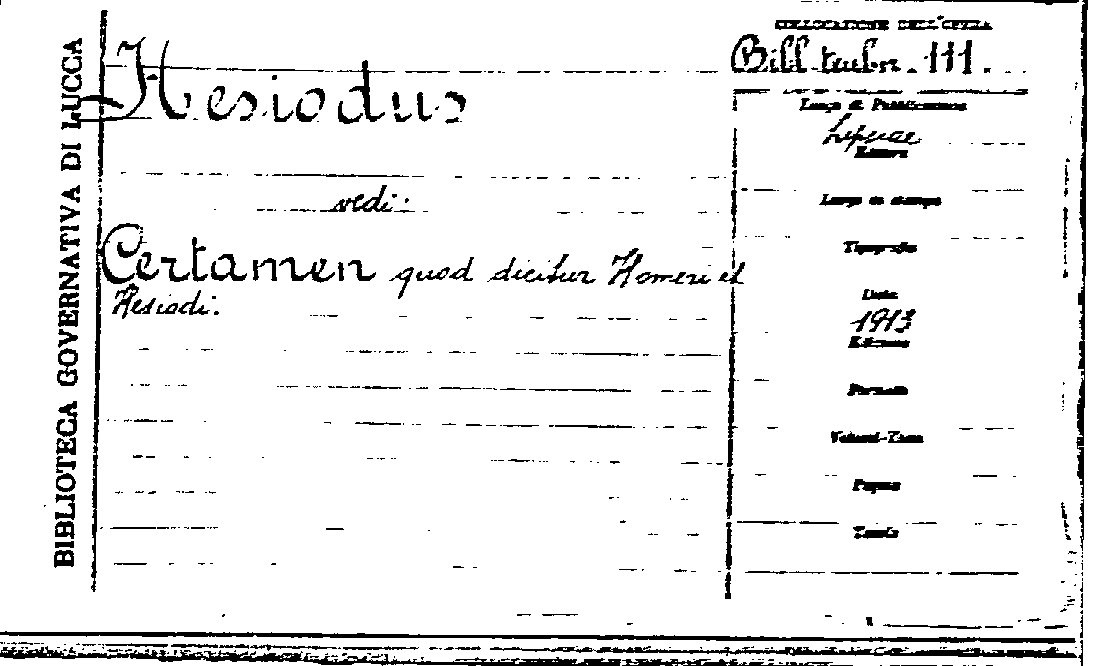 BIBLIOTECA GOVERNATIVA DI LUCCA
COLLOCAZIONE DELL'OPERA
Bibl. teubn. 111.
Hesiodus
Luogo di Pubblicazione
Lipsiae
Editore
vedi:
Luogo di stampa
Tipografia
Certamen quod dicitur Homeri et
Hesiodi.
Data
1913
Edizione
Formato
Volumi-Tomi
Pagine
Tavole